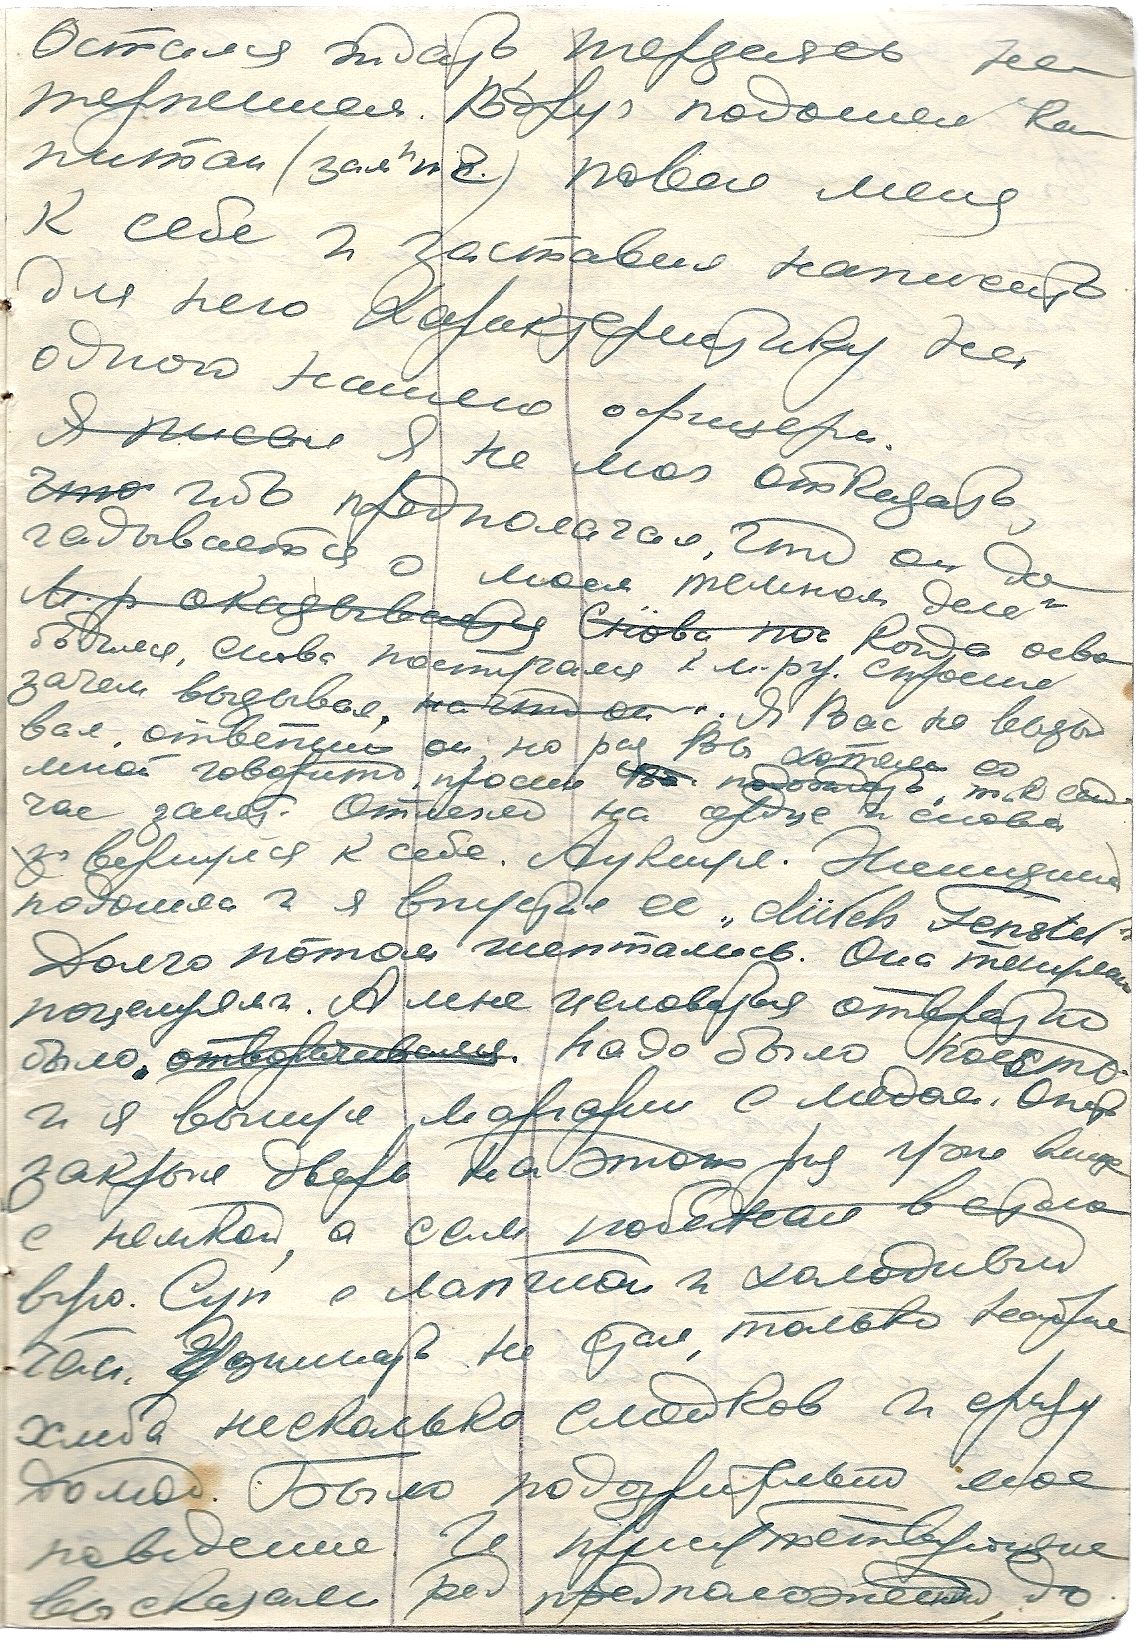 Остался ждать терзаясь не-
терпением. Вдруг подошел ка-
питан (зам п. ч.) повел меня
к себе и заставил написать
для него характеристику на
одного нашего офицера.
Я писал Я не мог отказать,
что ибо предполагал, что он до
гадывается о моем темном деле и
М-р оказывается Снова по Когда осво
бодился, снова постучался к м-ру. спросил
зачем вызывал, на что он . Я Вас не вызы
вал, ответил он, но раз Вы хотели со
мной говорить, прошу подождать, т.к. сей-
час занят. Отлегло на сердце и снова
вернулся к себе. Лукавил. Женщина
подошла и я впустил ее „durch Fenster"
Долго потом шептались. Она
поцелуями. А мне человеку отвратно
было, отворачивался. Надо было
и я вынул маргарин с медом. Опять
закрыл дверь на этот раз уже вместе
с немкой, а сам побежал в столо
вую. Суп с лапшой и холодный
чай. Ужинать не стал, только набрал
хлеба несколько сладков и сразу
домой. Было подозрительно мое
поведение и присутствующие
высказали ряд предположений, до